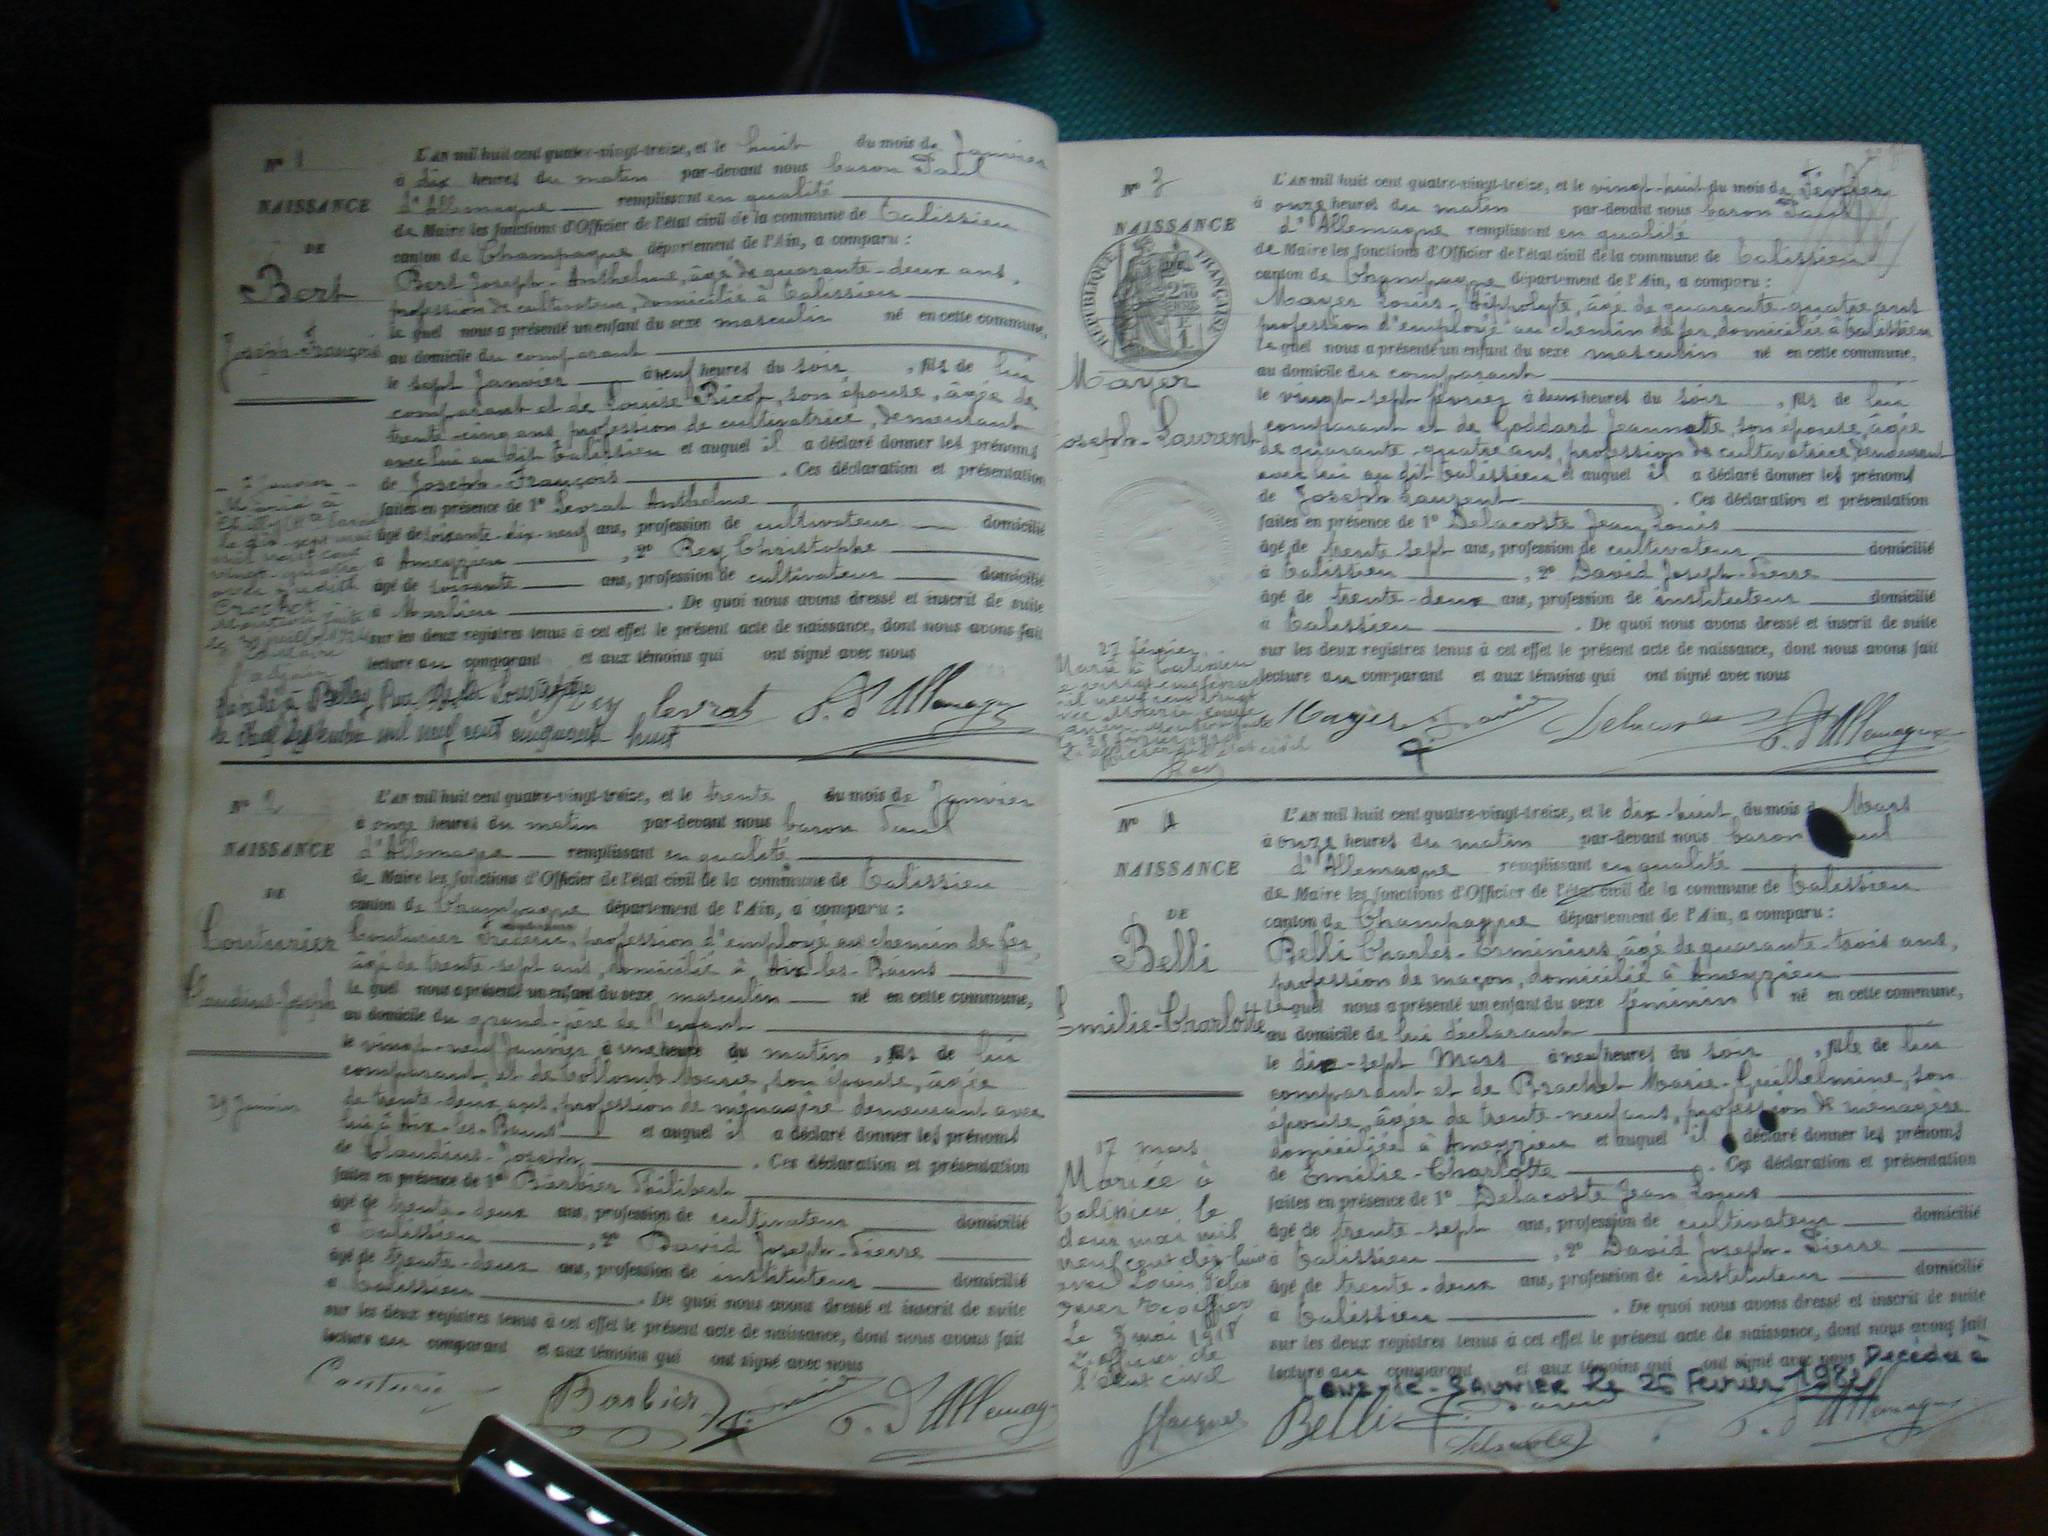 N° 1
NAISSANCE
DE
Bert
Joseph-François
L'AN mil huit cent quatre-vingt-treize, et le huit du mois de Janvier
à dix heures du matin par-devant nous baron Paul
d'Allemagne remplissant en qualité
de Maire les fonctions d'Officier de l'état civil de la commune de Talissieu
canton de Champagne département de l'Ain, a comparu :
Bert Joseph-Anthelme, âgé de quarante-deux ans,
profession de cultivateur, domicilié à Talissieu
lequel nous a présenté un enfant du sexe masculin né en cette commune,
au domicile du comparant
le sept Janvier à neuf heures du soir, fils de lui
comparant et de Louise Ricot, son épouse, âgée de
trente-cinq ans, profession de cultivatrice, demeurant
avec lui au dit Talissieu et auquel il a déclaré donner les prénoms
de Joseph-François. Ces déclaration et présentation
faites en présence de 1° Levrat Anthelme
âgé de soixante-dix-neuf ans, profession de cultivateur domicilié
à Ameyzieu, 2° Rey Christophe
âgé de soixante ans, profession de cultivateur domicilié
à Marlieu. De quoi nous avons dressé et inscrit de suite
sur les deux registres tenus à cet effet le présent acte de naissance, dont nous avons fait
lecture au comparant et aux témoins qui ont signé avec nous
7 Janvier
Marié à
le dix-sept mai
mil neuf cent
vingt-quatre
avec Judith
Crochet
décédé à Belley
le neuf septembre mil neuf cent cinquante huit
Rey Levrat P. d'Allemagne
N° 2
NAISSANCE
DE
Couturier
Claudius-Joseph
29 Janvier
L'AN mil huit cent quatre-vingt-treize, et le trente du mois de Janvier
à onze heures du matin par-devant nous baron Paul
d'Allemagne remplissant en qualité
de Maire les fonctions d'Officier de l'état civil de la commune de Talissieu
canton de Champagne département de l'Ain, a comparu :
Couturier Frédéric, profession d'employé au chemin de fer,
âgé de trente-sept ans, domicilié à Aix-les-Bains
lequel nous a présenté un enfant du sexe masculin né en cette commune,
au domicile du grand-père de l'enfant
le vingt-neuf Janvier à une heure du matin, fils de lui
comparant, et de Collomb Marie, son épouse, âgée
de trente-deux ans, profession de ménagère demeurant avec
lui à Aix-les-Bains et auquel il a déclaré donner les prénoms
de Claudius-Joseph. Ces déclaration et présentation
faites en présence de 1° Barbier Philibert
âgé de trente-deux ans, profession de cultivateur domicilié
à Talissieu, 2° David Joseph-Pierre
âgé de trente-deux ans, profession de instituteur domicilié
à Talissieu. De quoi nous avons dressé et inscrit de suite
sur les deux registres tenus à cet effet le présent acte de naissance, dont nous avons fait
lecture au comparant et aux témoins qui ont signé avec nous
Barbier P. d'Allemagne
N° 3
NAISSANCE
DE
RÉPUBLIQUE FRANÇAISE
Mayer
Joseph-Laurent
L'AN mil huit cent quatre-vingt-treize, et le vingt-huit du mois de Février
à onze heures du matin par-devant nous baron Paul
d'Allemagne remplissant en qualité
de Maire les fonctions d'Officier de l'état civil de la commune de Talissieu
canton de Champagne département de l'Ain, a comparu :
Mayer Louis-Hippolyte, âgé de quarante-quatre ans
profession d'employé au chemin de fer, domicilié à Talissieu
lequel nous a présenté un enfant du sexe masculin né en cette commune,
au domicile du comparant
le vingt-sept février à deux heures du soir, fils de lui
comparant et de Goddard Jeannette, son épouse, âgée
de quarante-quatre ans, profession de cultivatrice, demeurant
avec lui au dit Talissieu et auquel il a déclaré donner les prénoms
de Joseph Laurent. Ces déclaration et présentation
faites en présence de 1° Delacoste Jean Louis
âgé de trente sept ans, profession de cultivateur domicilié
à Talissieu, 2° David Joseph-Pierre
âgé de trente-deux ans, profession de instituteur domicilié
à Talissieu. De quoi nous avons dressé et inscrit de suite
sur les deux registres tenus à cet effet le présent acte de naissance, dont nous avons fait
lecture au comparant et aux témoins qui ont signé avec nous
27 février
Marié à Talissieu
Rey
Mayer David Delacoste P. d'Allemagne
N° 4
NAISSANCE
DE
Belli
Emilie-Charlotte
L'AN mil huit cent quatre-vingt-treize, et le dix-huit du mois de Mars
à onze heures du matin par-devant nous baron Paul
d'Allemagne remplissant en qualité
de Maire les fonctions d'Officier de l'état civil de la commune de Talissieu
canton de Champagne département de l'Ain, a comparu :
Belli Charles-Erminius, âgé de quarante-trois ans,
profession de maçon, domicilié à Ameyzieu
lequel nous a présenté un enfant du sexe féminin né en cette commune,
au domicile de lui déclarant
le dix-sept Mars à neuf heures du soir, fille de lui
comparant et de Brachet Marie-Guillelmine, son
épouse, âgée de trente-neuf ans, profession de ménagère
domiciliée à Ameyzieu et auquel il a déclaré donner les prénoms
de Emilie-Charlotte. Ces déclaration et présentation
faites en présence de 1° Delacoste Jean Louis
âgé de trente-sept ans, profession de cultivateur domicilié
à Talissieu, 2° David Joseph-Pierre
âgé de trente-deux ans, profession de instituteur domicilié
à Talissieu. De quoi nous avons dressé et inscrit de suite
sur les deux registres tenus à cet effet le présent acte de naissance, dont nous avons fait
lecture au comparant et aux témoins qui ont signé avec nous Décédée à
Lons-le-Saunier le 25 Février
17 mars
Mariée à
Talissieu le
deux mai mil
neuf cent dix-huit
avec Louis
Le 3 mai 1918
L'officier de
l'état civil
Jacques
Belli David Delacoste P. d'Allemagne